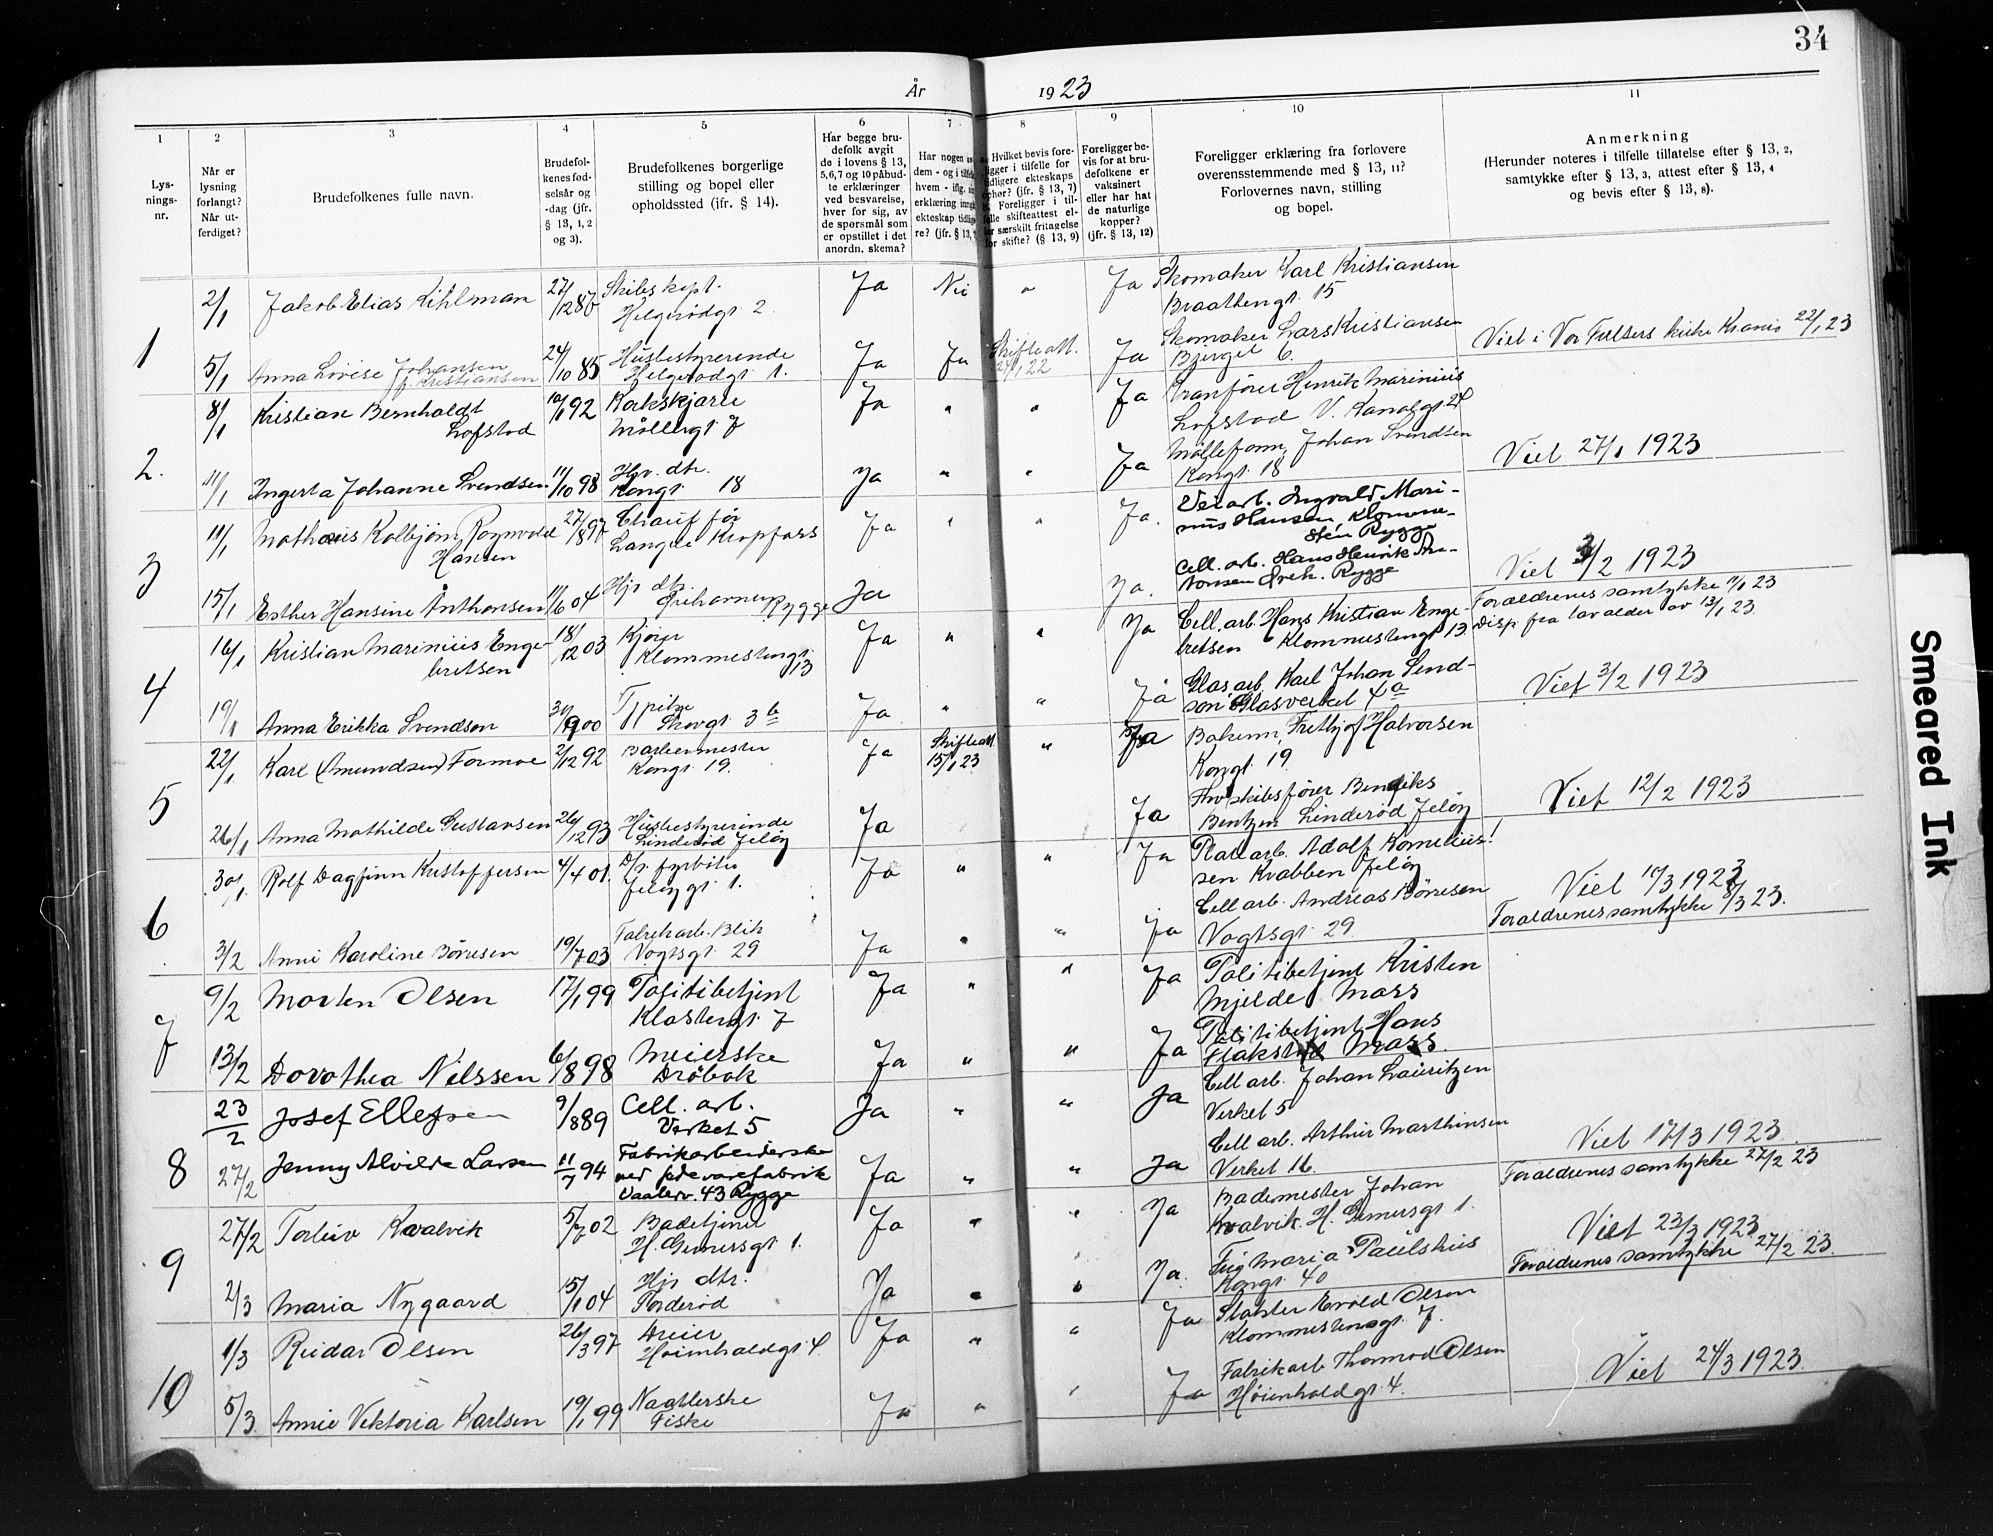 34
År 1923
1 2 3 4 5 6 7 8 9 10 11
Lys-
nings-
nr.
Når er
lysning
forlangt?
Når ut-
ferdiget?
Brudefolkenes fulle navn.
Brudefol-
kenes fød-
selsår og
-dag (jfr.
§ 13, 1, 2
og 3).
Brudefolkenes borgerlige
stilling og bopel eller
opholdssted (jfr. § 14).
Har begge bru-
defolk avgit
de i lovens § 13,
5, 6, 7 og 10 påbud-
te erklæringer
ved besvarelse,
hver for sig, av
de spørsmål som
er opstillet i det
anordn. skema?
Har nogen
dem - og i tilfelle
hvem - iflg.
erklæring inngått
ekteskap tidlige-
re? (jfr. § 13,
Hvilket bevis fore-
ligger i tilfelle for
tidligere ekteskaps
ophør? (jfr. § 13, 7)
Foreligger i til-
felle skifteattest el-
ler særskilt fritagelse
for skifte? (§ 13, 9)
Foreligger be-
vis for at bru-
defolkene er
vaksinert
eller har hat
de naturlige
kopper?
(jfr. § 13, 12)
Foreligger erklæring fra forlovere
overensstemmende med § 13, 11?
Forlovernes navn, stilling
og bopel.
Anmerkning
(Herunder noteres i tilfelle tillatelse efter § 13, 2,
samtykke efter § 13, 3, attest efter § 13, 4
og bevis efter § 13, 8).
1
2/1 Jakob Elias Kihlman 27/12 87 Skibskapt. Ja Nei " Ja Skomaker Karl Kristiansen
Helgerødgt. 2. Braathengt. 15
5/1 Anna Lovise Johansen f. Kristiansen 24/10 85 Husbestyrerinde Ja Ja Skifteatt. Ja Skomaker Lars Kristiansen
Helgerødgt. 1. Bjerget 6.
Viet i Vor Frelsers kirke Krania 22/1 23
2.
8/1 Kristian Bernhaldt 10/1 92 Kokskjører Ja " " Ja Kranfører Henrik Marinius
Lofstad Møllergt. 7 Lofstad V. Kanalgt. 24
11/1 Ingerta Johanne Svendsen 11/10 98 Hjv. dtr. Ja " " Ja Mølleform. Johan Svendsen
Kongt. 18 Kongt. 18
Viet 27/1 1923
3
11/1 Mathæus Kolbjørn Rognvald 27/8 97 Chauffør Ja " " Ja. Veiarb. Ingvald Mari-
Hansen nius Hansen, Klomme-
sten Rygge
15/1 Esther Hansine Anthonsen 11/6 04 Hjv dtr. Ja Ja. Cell. arb. Hans Henrik An-
Rygge tonsen Rygge
Viet 3/2 1923
Foraldrenes samtykke 11/1 23
Disp fra lavalder av 13/1 23
4
16/1 Kristian Marinius Enge- 18/12 03 Kjører Ja " " Ja Cell. arb. Hans Kristian Enge-
bretsen Klommestengt. 13 bretsen Klommestengt 13
19/1 Anna Erikka Svendsen 00 Ja " " Ja Glasarb. Karl Johan Svend-
Skovgt. 3 b sen Glasverket 4 a
Viet 3/2 1923
5
22/1 Karl (Amundsen) Formoe 2/12 92 Barbermester Ja Skifteatt. 15/1 23 " Ja Bakerm. Fritjof Halvorsen
Kongt. 19. Kongt. 19.
26/1 Anna Mathilde Gustavsen 26/12 93 Husbestyrerinde Ja Ja Fhv skibsfører Bendiks
Linderød Jeløy Bentzen Linderød Jeløy
Viet 12/2 1923
6
30/1. Rolf Dagfinn Kristoffersen 4/4 01. D/s. fyrbøter Ja " " Ja Adolf Kornelius!
Jeløygt. 1. sen Krabben Jeløy
3/2 Anni Karoline Børresen 19/7 03 Fabrikarb. Blik Ja " " Ja Cell arb. Andreas Børresen
Vogtsgt 29 Vogtsgt 29.
Viet 10/3 1923
Foraldrenes samtykke 8/3 23.
7
9/2 Morten Olsen 17/1 99 Politibetjent Ja " " Ja Politibetjent Kristen
Klostergt. 7 Mjelde Moss
13/2 Dorothea Nilssen 6/8 98 Meierske Ja " " Ja Politibetjent Hans
Drøbak Flakstad Moss.
8
23/2 Josef Ellefsen 9/8 89 Cell. arb. Ja " " Ja Cell arb. Johan Lauritzen
Verket 5 Verket 5
27/2 Jenny Alvilde Larsen 11/7 94 Fabrikarbeiderske Ja " " Ja Cell arb. Arthur Marthinsen
Vaalerv. 43 Rygge Verket 16.
Viet 17/3 1923
Foraldrenes samtykke 27/2 23
9
27/2 Torleiv Kvalvik 5/7 02 Badetjener Ja " " Ja Bademester Johan
H. Gernersgt 1. Kvalvik. H. Gernersgt 1.
2/3 Maria Nygaard 15/1 04 Hjv dtr. Ja " " Ja. Maria Paulshus
Torderød Kongt. 40
Viet 23/3 1923
Foraldrenes samtykke 27/2 23.
10
1/3 Reidar Olsen 26/3 97 Dreier Ja " " Ja Slakter Evald Olsen
Høienhaldgt. 4. Klommestensgt. 7.
5/3 Annie Viktoria Karlsen 19/1 99 Naatlerske Ja " " Ja Fabrikarb Thormod Olsen
Fiske Høienhaldgt. 4.
Viet 24/3 1923.
Smeared Ink